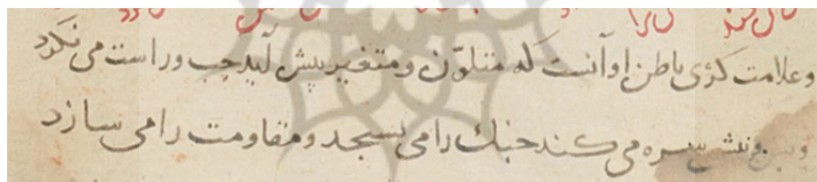 وعلامت کژی باطن او آنست که متلوّن ومتغیر پیش آید چپ و راست می نکرد
وپس وپیش سره می کند جنك را می بسیجد ومقاومت را می سازد